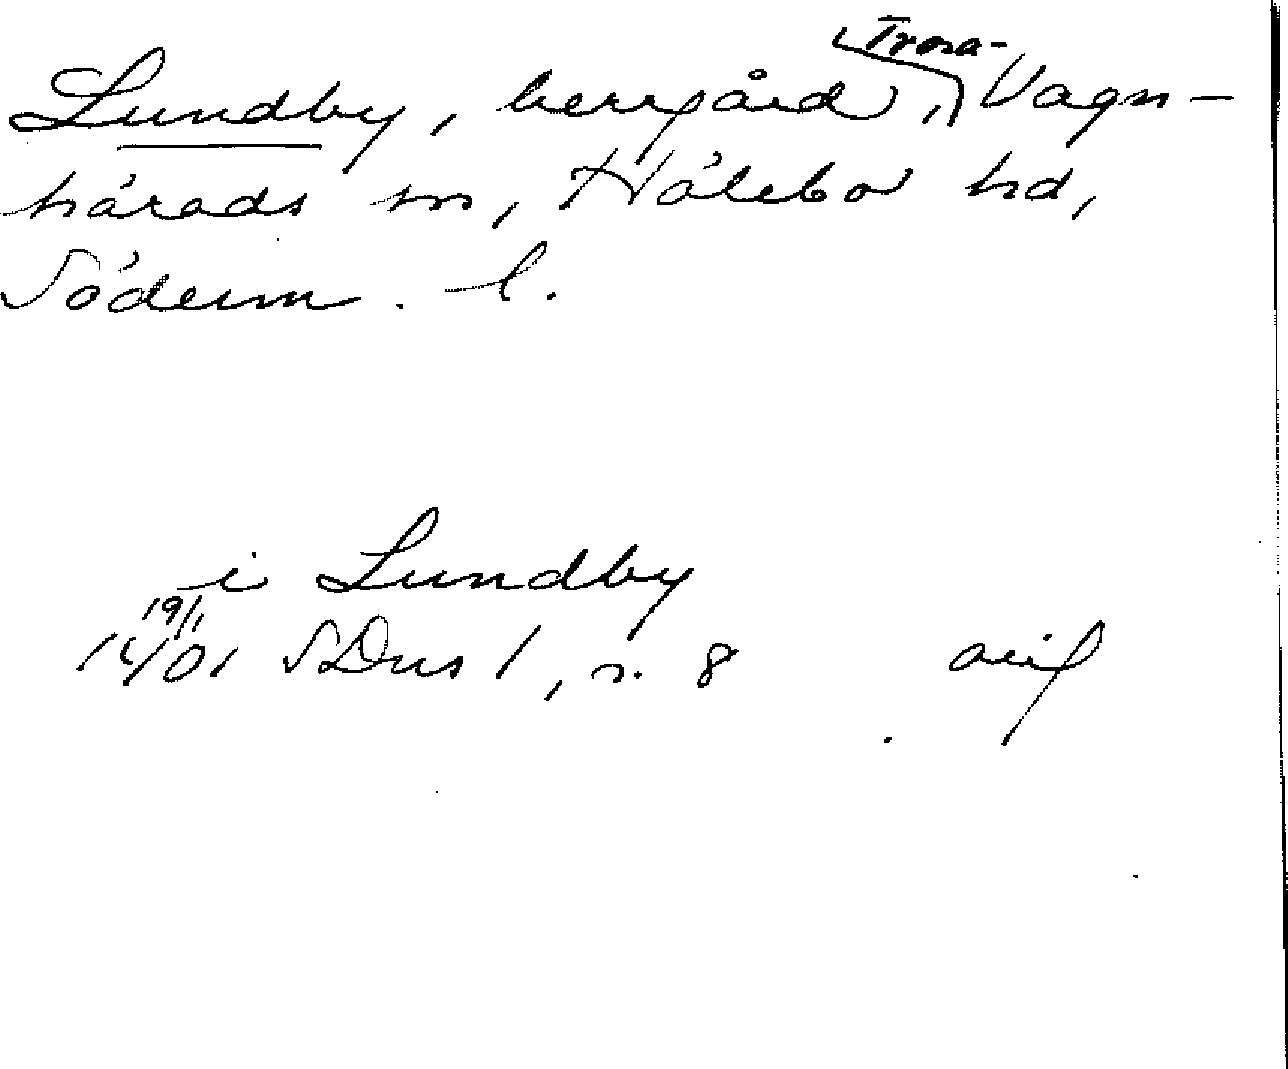 Lundby, herrgård, Trosa-Vagn-
härads sn, Hölebo hd,
Söderm. l.
i Lundby
19/1 1401 SDns 1, s. 8 avf